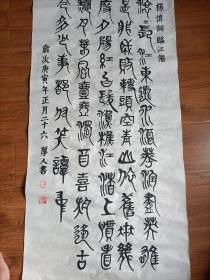 楊慎詞臨江僊
滾滾長江東逝水浪花淘盡英雄
是非成敗轉頭空青山依舊在幾
度夕陽紅白髮漁樵江渚上慣看
秋月春風一壺濁酒喜相逢古
今多少事都付笑談中
歲次庚寅年正月二十六 厚人書